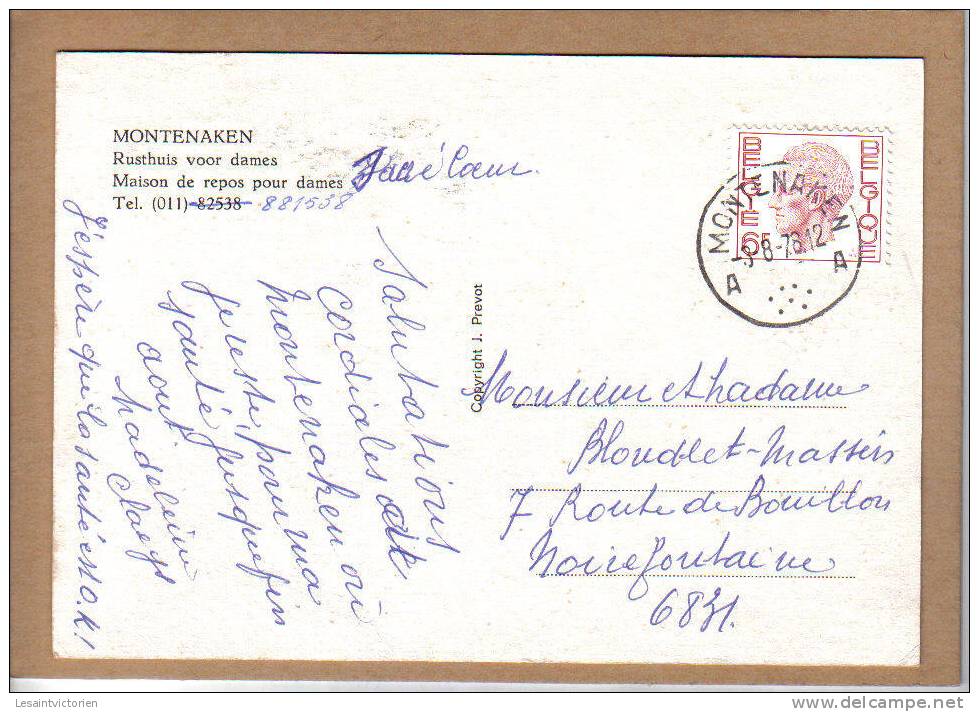 MONTENAKEN
Rusthuis voor dames
Maison de repos pour dames
Tel. (011) 82538 881538
Sacré Cœur.
BELGIQUE
BELGIE 6F
MONTENAKEN
-8-78 12
A A
Salutations
cordiales de
Montenaken où
je reste, pour ma
santé jusque fin
aout.
Madeleine
Claeys
J'espère que la santé est O.K!
Copyright J. Prevot
Monsieur et Madame
Blondlet-Massin
7 Route de Bouillon
Noirefontaine
6831.
Lesaintvictorien
delcampe.net